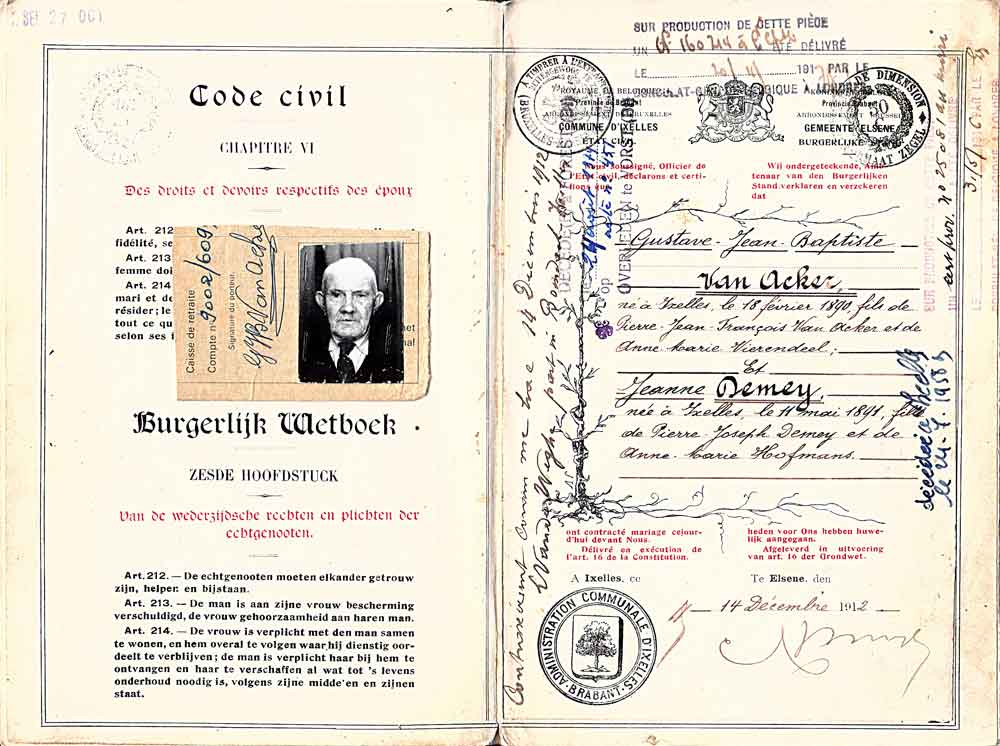 Code civil
CHAPITRE VI
Des droits et devoirs respectifs des époux
Art. 212
fidélité, se
Art. 213
femme doi
Art. 214
mari et de
résider; le
tout ce qu
selon ses
Caisse de retraite
Compte n° 9002/609
Signature du porteur.
Burgerlijk Wetboek
ZESDE HOOFDSTUCK
Van de wederzijdsche rechten en plichten der
echtgenooten.
Art. 212. — De echtgenooten moeten elkander getrouw
zijn, helpen en bijstaan.
Art. 213. — De man is aan zijne vrouw bescherming
verschuldigd, de vrouw gehoorzaamheid aan haren man.
Art. 214. — De vrouw is verplicht met den man samen
te wonen, en hem overal te volgen waar hij dienstig oor-
deelt te verblijven; de man is verplicht haar bij hem te
ontvangen en haar te verschaffen al wat tot 's levens
onderhoud noodig is, volgens zijne midde'en en zijnen
staat.
SUR PRODUCTION DE CETTE PIÈCE
UN
ÉTÉ DÉLIVRÉ
LE
191
PAR LE
ROYAUME DE BELGIQUE
Province de Brabant
COMMUNE D'IXELLES
ÉTAT CIVIL
Provincie Brabant
GEMEENTE ELSENE
BURGERLIJKE
Nous soussigné, Officier de
l'Etat civil, déclarons et certi-
fions que
Wij ondergeteekende, Amb-
tenaar van den Burgerlijken
Stand verklaren en verzekeren
dat
Gustave-Jean-Baptiste
Van Acker,
né à Ixelles, le 18 février 1890, fils de
Pierre-Jean-François Van Acker et de
Anne-Marie Vierendeel;
Et
Jeanne Demey,
née à Ixelles, le 11 mai 1891, fille
de Pierre-Joseph Demey et de
Anne-Marie Hofmans.
ont contracté mariage cejour-
d'hui devant Nous.
Délivré en exécution de
l'art. 16 de la Constitution.
heden voor Ons hebben huwe-
lijk aangegaan.
Afgeleverd in uitvoering
van art. 16 der Grondwet.
A Ixelles, ce
Te Elsene, den
14 Décembre 1912
ADMINISTRATION COMMUNALE D'IXELLES
BRABANT
décédée à Ixelles